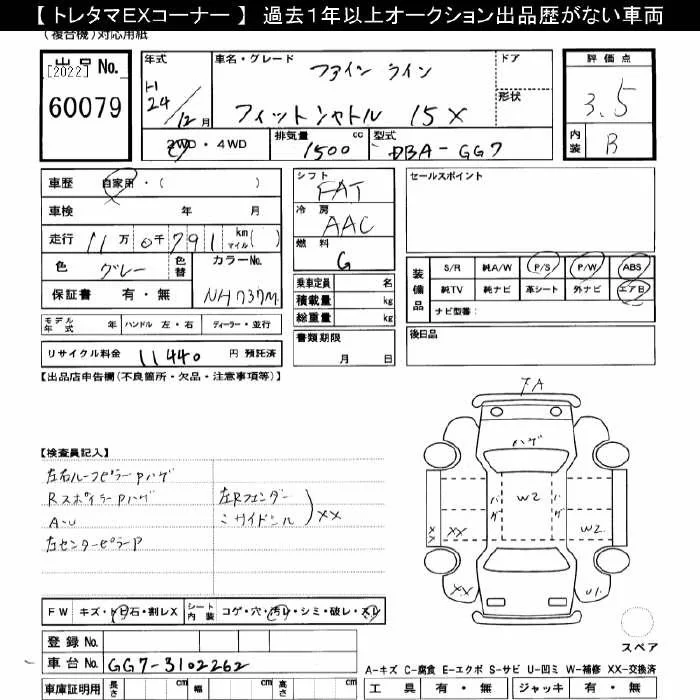 【 トレタマEXコーナー 】 過去1年以上オークション出品歴がない車両
(複合機)対応用紙
出品No.
[2022]
60079
年式
H
24
12月
車名・グレード
ファイン ライン
フィットシャトル 15X
ドア
形状
評価点
3.5
内装
B
2WD・4WD
排気量
cc
1500
型式
DBA-GG7
車歴 自家用・( )
車検 年 月
走行 11万0千791 km マイル( )
色 グレー 色替
カラーNo.
NH737M
保証書 有・無
モデル年式 年 ハンドル 左・右 ディーラー・並行
リサイクル料金 11440 円 預託済
シフト
FAT
冷房
AAC
燃料
G
乗車定員 名
積載量 kg
総重量 kg
書類期限
月 日
セールスポイント
装備品
S/R 純A/W P/S P/W ABS
純TV 純ナビ 革シート 外ナビ エアB
ナビ型番:
後日品
【出品店申告欄(不良箇所・欠品・注意事項等)】
【検査員記入】
左右ルーフピラーPハゲ
RスポイラーPハゲ
A・U
左センターピラーP
左Rフェンダー
〃サイドシル
XX
FA
ハゲ
ハゲ
W2
ハゲ
XX
XX
W2
XX
U1
スペア
FW キズ・トビ石・割レX シート内装 コゲ・穴・汚レ・シミ・破レ・スレ
登録No.
車台No. GG7-3102262
車庫証明用 長さ cm 幅 cm 高さ cm
A-キズ C-腐食 E-エクボ S-サビ U-凹ミ W-補修 XX-交換済
工具 有・無 ジャッキ 有・無